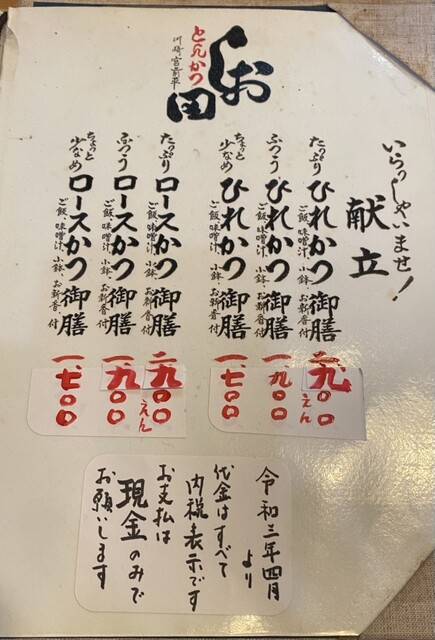 とんかつ
しお田
川崎宮前平
いらっしゃいませ!
献立
たっぷり ひれかつ御膳 二、九〇〇えん
ご飯、味噌汁、小鉢、お新香、付
ふつう ひれかつ御膳 一、九〇〇
ご飯、味噌汁、小鉢、お新香、付
ちょっと少なめ ひれかつ御膳 一、七〇〇
ご飯、味噌汁、小鉢、お新香、付
たっぷり ロースかつ御膳 二、九〇〇えん
ご飯、味噌汁、小鉢、お新香付
ふつう ロースかつ御膳 一、九〇〇
ご飯、味噌汁、小鉢、お新香付
ちょっと少なめ ロースかつ御膳 一、七〇〇
ご飯、味噌汁、小鉢、お新香、付
令和三年四月
より
代金はすべて
内税表示です
お支払は
現金のみで
お願いします